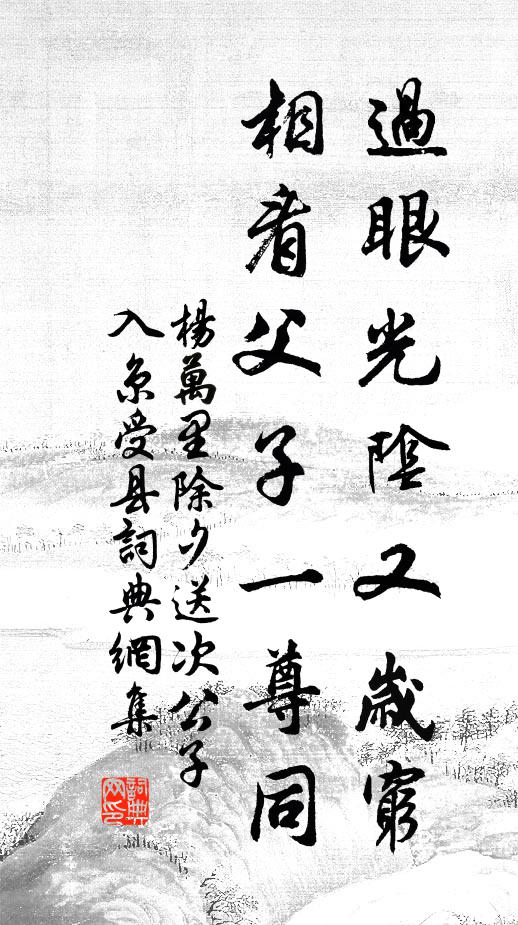 過眼光陰又歲窮
相看父子一尊同
楊萬里除夕送次公子
入京受县詞典網集
詞典网印